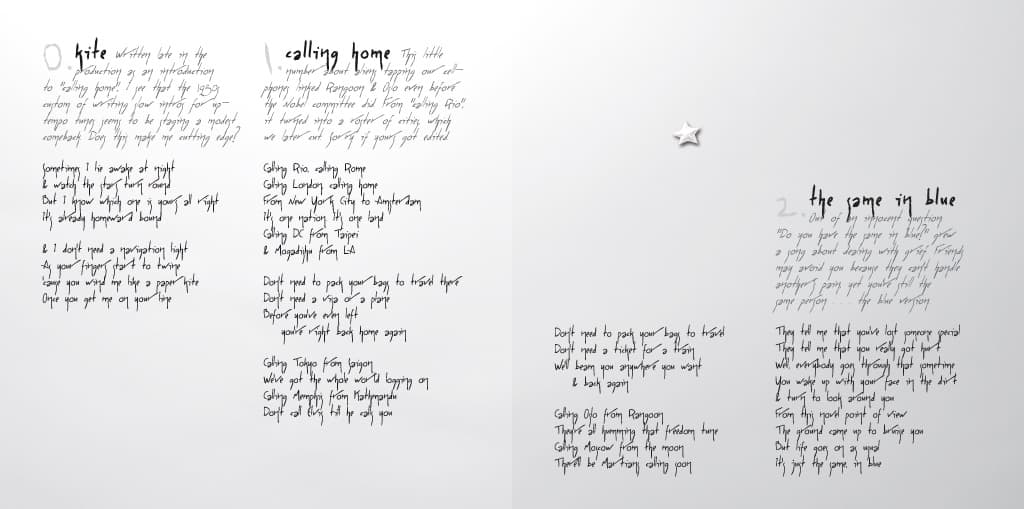 0. kite Written late in the
production as an introduction
to "calling home". I see that the 1950s
custom of writing slow intros for up-
tempo tunes seems to be staging a modest
comeback. Does this make me cutting edge?
Sometimes I lie awake at night
& watch the stars turn round
But I know which one is yours all right
It's already homeward bound
& I don't need a navigation light
As your fingers start to twine
'cause you wind me like a paper kite
Once you get me on your line
1. calling home This little
number about aliens tapping our cell-
phones linked Rangoon & Oslo even before
the Nobel committee did. From "calling Rio",
it turned into a roster of cities which
we later cut. Sorry if yours got edited
Calling Rio, calling Rome
Calling London, calling home
From New York City to Amsterdam
It's one nation, it's one land
Calling DC from Taipei
& Mogadishu from LA
Don't need to pack your bags to travel there
Don't need a visa or a plane
Before you've even left
you're right back home again
Calling Tokyo from Saigon
We've got the whole world logging on
Calling Memphis from Kathmandu
Don't call Elvis till he calls you
Don't need to pack your bags to travel
Don't need a ticket for a train
We'll beam you anywhere you want
& back again
Calling Oslo from Rangoon
They're all humming that freedom tune
Calling Moscow from the moon
There'll be Martians calling soon
2. the same in blue
Out of an innocent question
"Do you have the same in blue?" grew
a song about dealing with grief. Friends
may avoid you because they can't handle
another's pain, yet you're still the
same person . . . the blue version
They tell me that you've lost someone special
They tell me that you really got hurt
Well, everybody goes through that sometime
You wake up with your face in the dirt
& turn to look around you
From this novel point of view
The ground came up to bruise you
But life goes on as usual
It's just the same, in blue